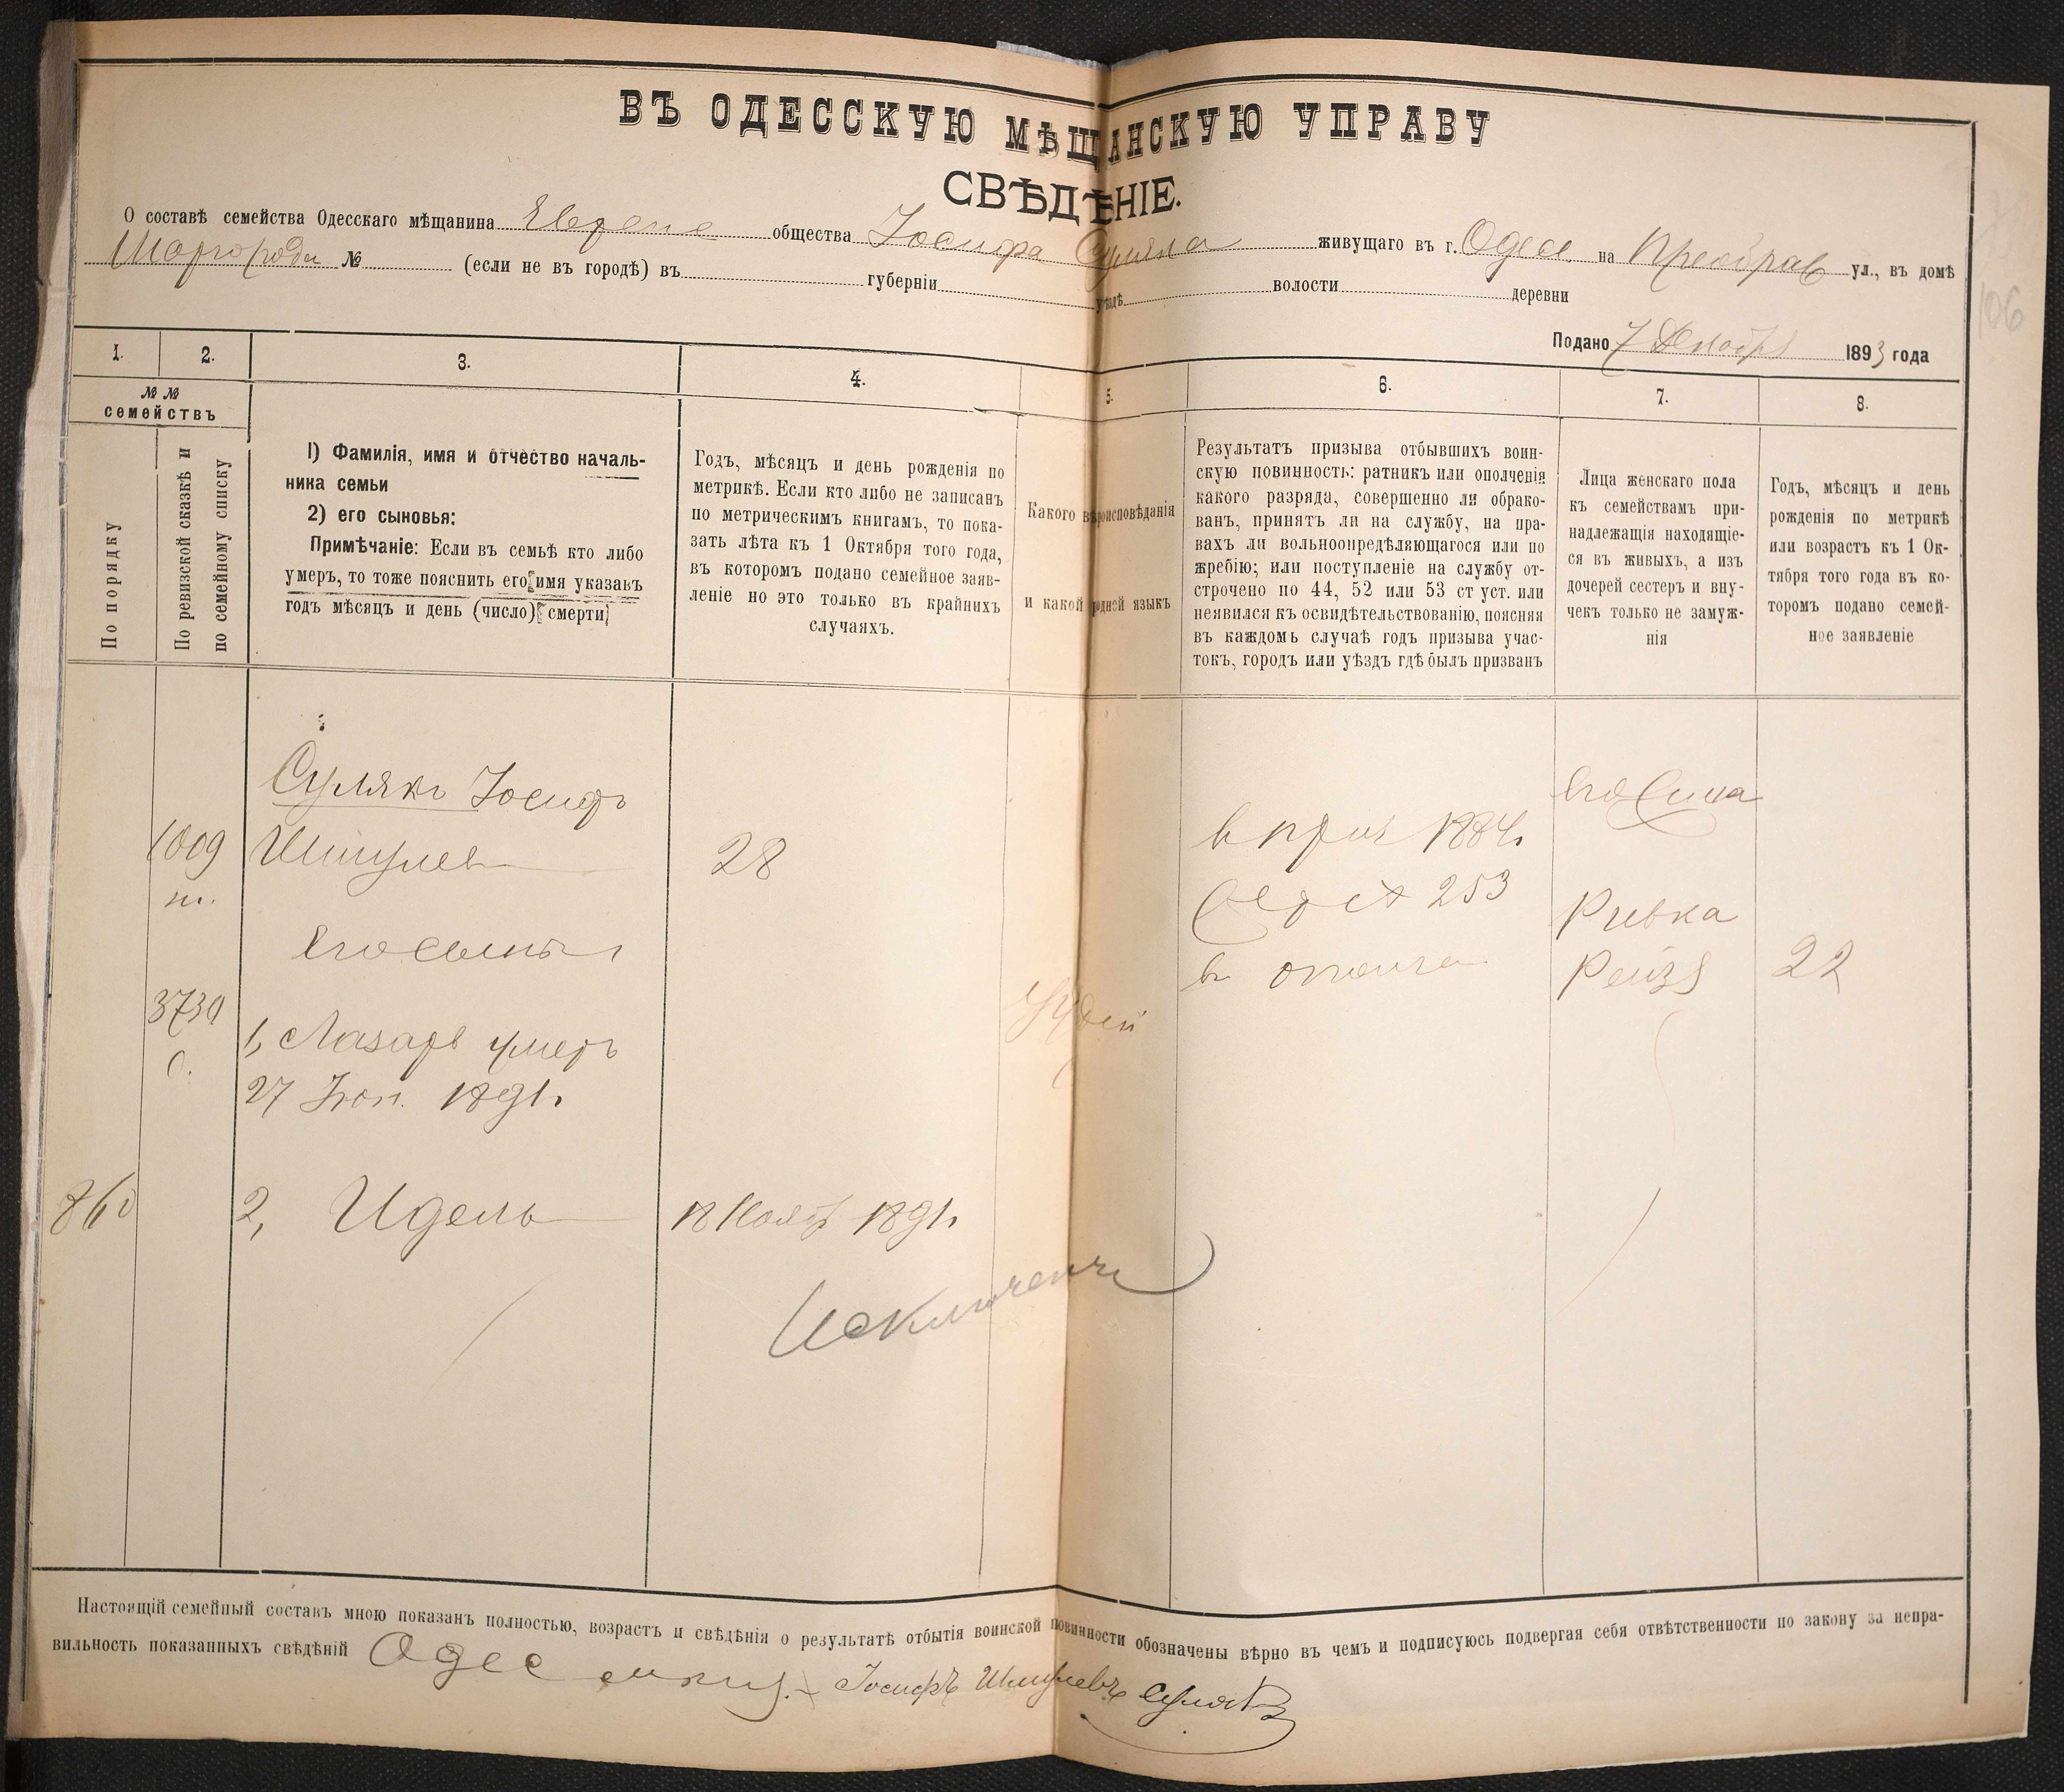 ВЪ ОДЕССКУЮ МѢЩАНСКУЮ УПРАВУ
СВѢДѢНІЕ.
О составѣ семейства Одесскаго мѣщанина общества Іосифа Суляка живущаго въ г. Одес. на Преображ ул., въ домѣ
№ (если не въ городѣ) въ губерніи уѣздѣ волости деревни
106
Подано 7 Декабр 1893 года
1. 2. 3. 4. 5. 6. 7. 8.
№ №
семействъ
По порядку
По ревизской сказкѣ и
по семейному списку
1) Фамилія, имя и отчество началь-
ника семьи
2) его сыновья:
Примѣчаніе: Если въ семьѣ кто либо
умеръ, то тоже пояснить его имя указавъ
годъ мѣсяцъ и день (число) смерти
Годъ, мѣсяцъ и день рожденія по
метрикѣ. Если кто либо не записанъ
по метрическимъ книгамъ, то пока-
зать лѣта къ 1 Октября того года,
въ котором подано семейное заяв-
леніе но это только въ крайнихъ
случаяхъ.
Какого вѣроисповѣданія
и какой родной языкъ
Результатъ призыва отбывшихъ воин-
скую повинность: ратникъ или ополченія
какого разряда, совершенно ли обрако-
ванъ, принятъ ли на службу, на пра-
вахъ ли вольноопредѣляющагося или по
жребію; или поступленіе на службу от-
строчено по 44, 52 или 53 ст уст. или
неявился къ освидѣтельствованію, поясняя
въ каждомъ случаѣ годъ призыва учас-
токъ, городъ или уѣздъ гдѣ былъ призванъ
Лица женскаго пола
къ семействамъ при-
надлежащія находящіе-
ся въ живыхъ, а изъ
дочерей сестеръ и вну-
чекъ только не замуж-
нія
Годъ, мѣсяцъ и день
рожденія по метрикѣ
или возрастъ къ 1 Ок-
тября того года въ ко-
торомъ подано семей-
ное заявленіе
Сулякъ Іосифъ
1009 Шмулев 28
м.
Его сыновья
3739
С.
1, Лазарь умеръ
27 1891г.
860 2, Идель 18 Нояб 1891г.
Іудей
1884г.
253
Его жена
Ривка
Рейзя 22
Исключенъ
Настоящій семейный составъ мною показанъ полностью, возрастъ и свѣдѣнія о результатѣ отбытія воинской повинности обозначены вѣрно въ чемъ и подписуюсь подвергая себя отвѣтственности по закону за непра-
вильность показанныхъ свѣдѣній Одес мѣщ. Іосифъ Шмулевъ Сулякъ